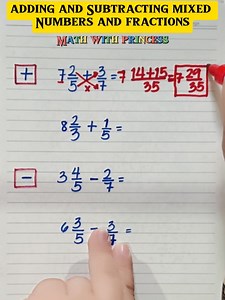 ADDING AND SUBTRACTING MIXED
NUMBERS AND FRACTIONS
MATH WITH PRINCESS
+ 7 2/5 + 3/7 = 7 14+15/35 = 7 29/35
8 2/3 + 1/5 =
- 3 4/5 - 2/7 =
6 3/5 - 3/7 =